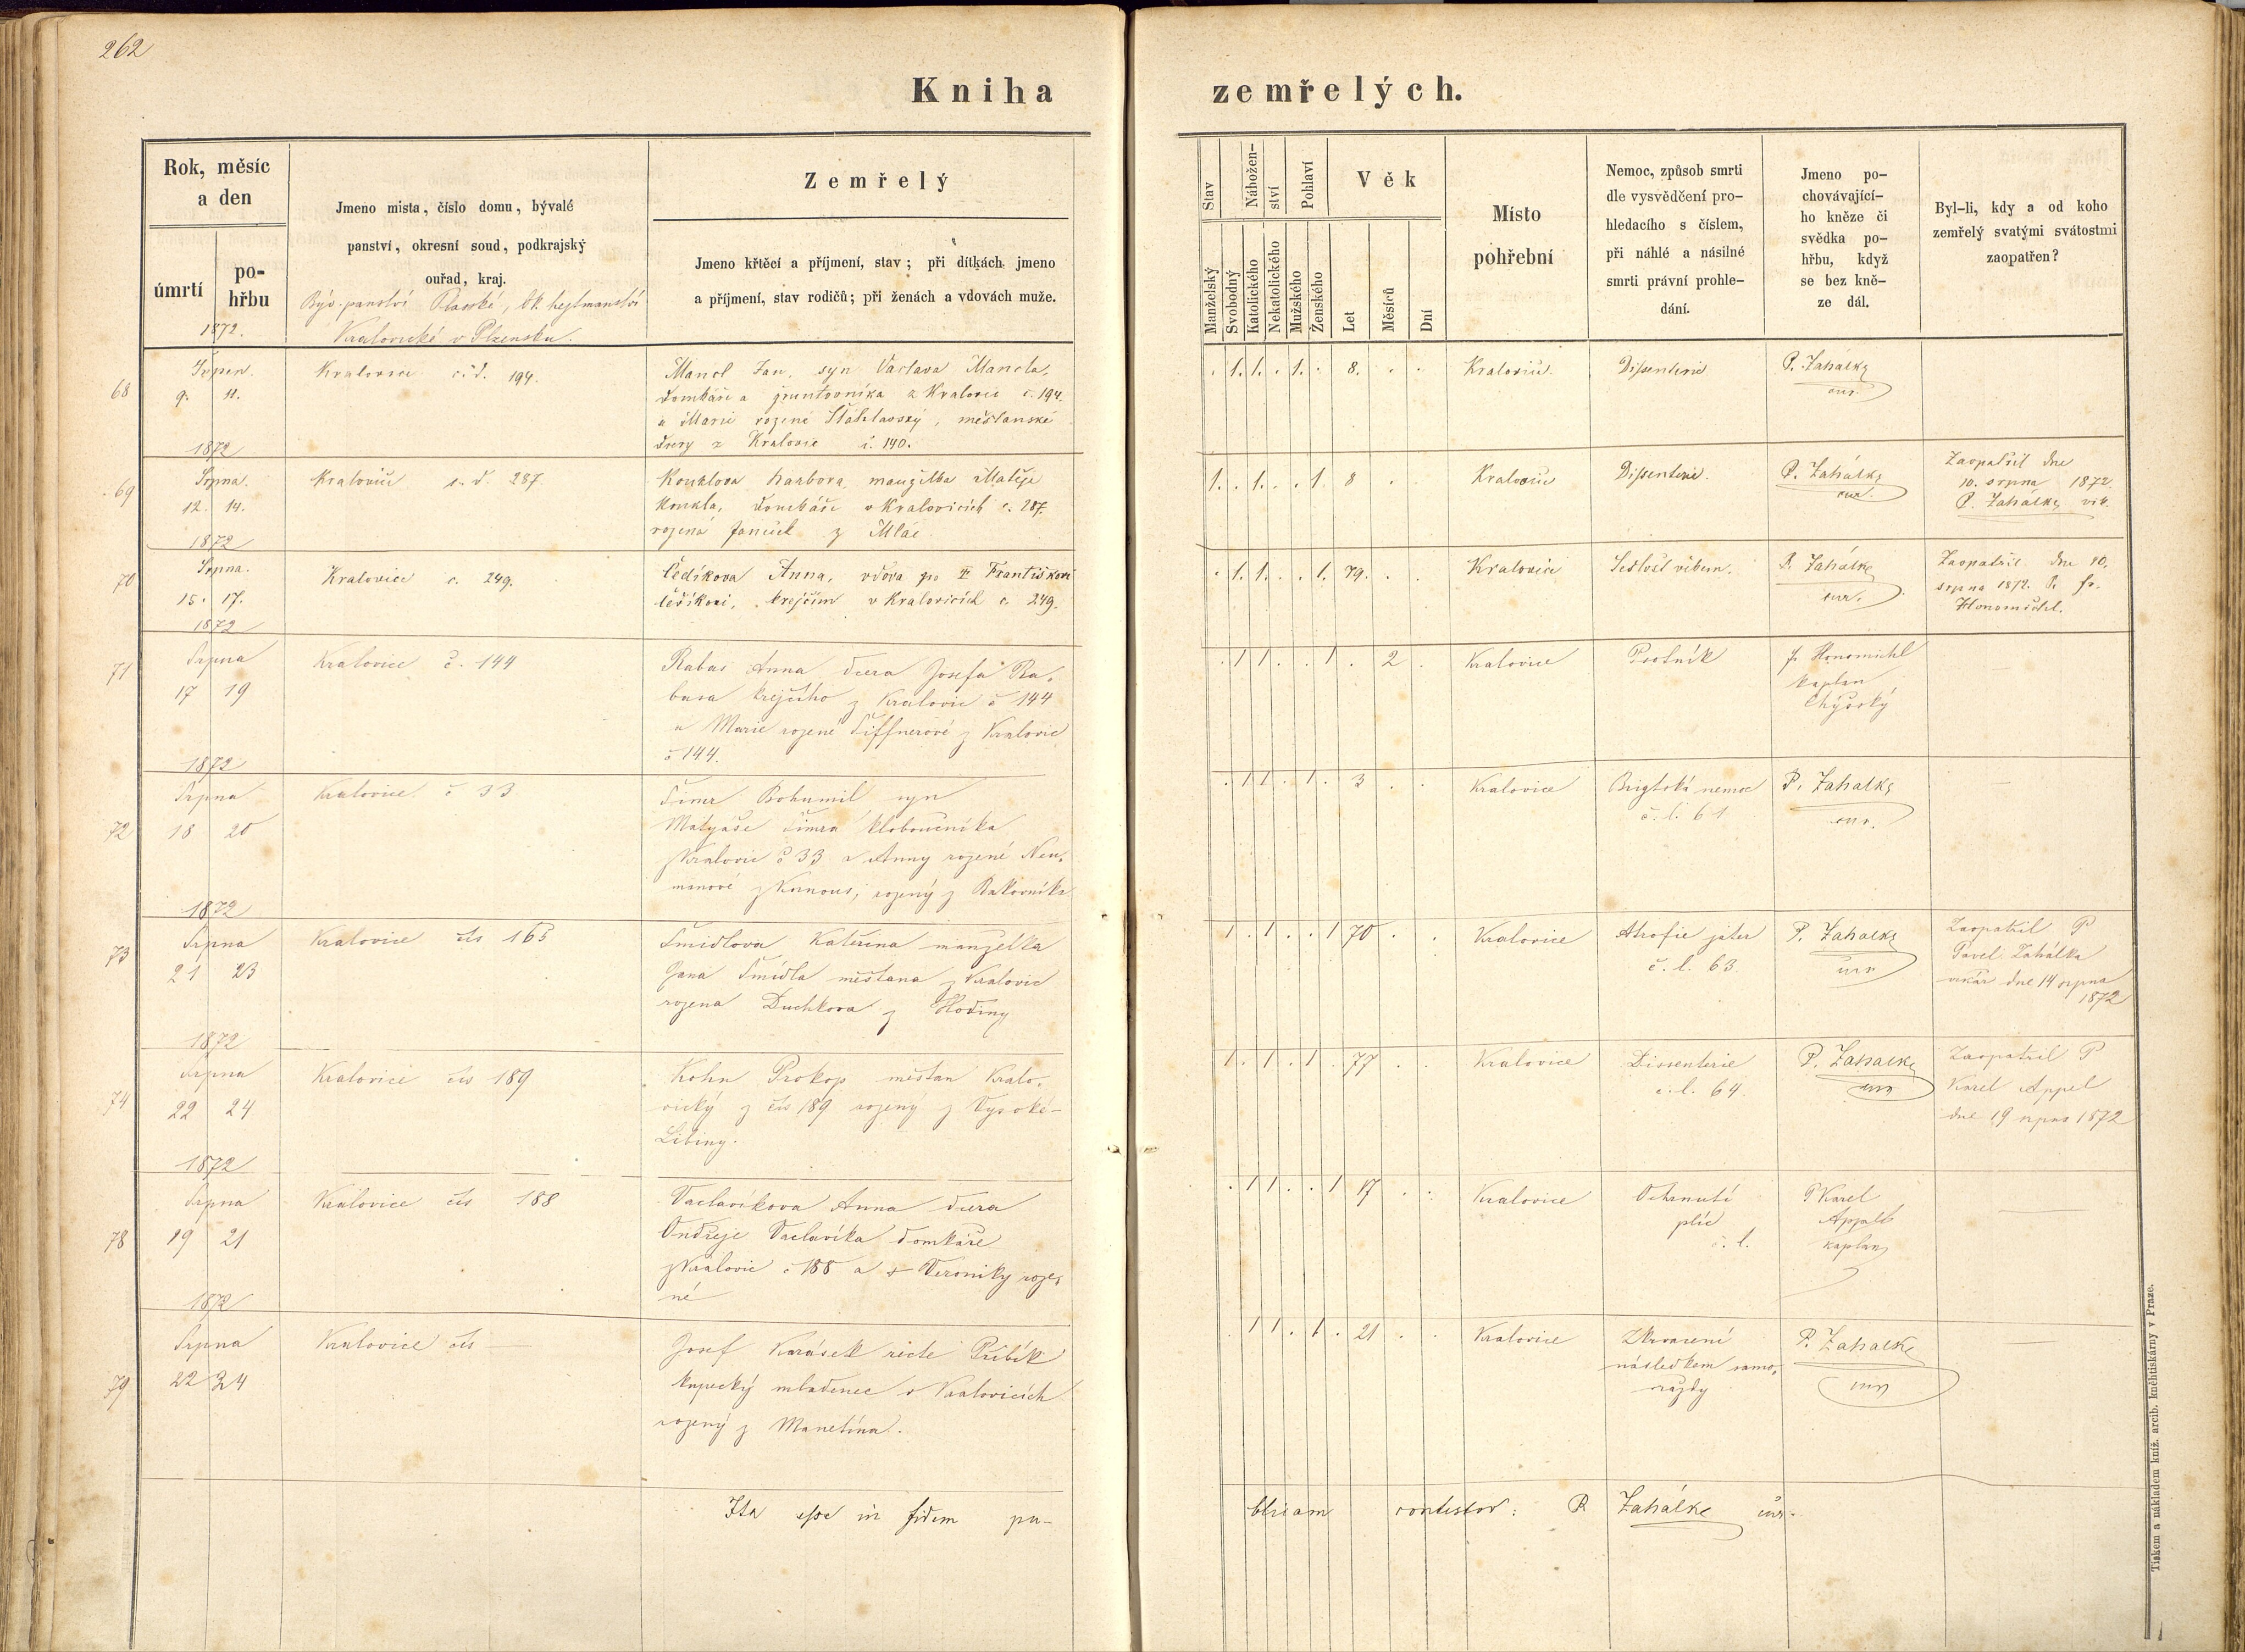 262
Kniha zemřelých.
Rok, měsíc
a den
úmrtí
po-
hřbu
1872.
Jmeno mista, číslo domu, bývalé
panství, okresní soud, podkrajský
ouřad, kraj.
Býv. panství Plasské, ok. hejtmanství
Kralovické v Plzensku.
Zemřelý
Jmeno křtěcí a příjmení, stav; při dítkách jmeno
a příjmení, stav rodičů; při ženách a vdovách muže.
Stav
Manželský
Svobodný
Nábožen-
ství
Katolického
Nekatolického
Pohlaví
Mužského
Ženského
Věk
Let
Měsíců
Dní
Místo
pohřební
Nemoc, způsob smrti
dle vysvědčení pro-
hledacího s číslem,
při náhlé a násilné
smrti právní prohle-
dání.
Jmeno po-
chovávající-
ho kněze či
svědka po-
hřbu, když
se bez kně-
ze dál.
Byl-li, kdy a od koho
zemřelý svatými svátostmi
zaopatřen?
68
Srpen.
9. 11.
Kralovice č.d. 194.
Mancl Jan, syn Václava Mancla,
domkáře a gruntovníka z Kralovic č. 194.
a Marie rozené Šťáhlavský, měšťanské
dcery z Kralovic č. 140.
. 1. 1. . 1. . 8. . .
Kralovic.
Dissenterie
P. Zahálka
cur.
1872
69
Srpna.
12. 14.
Kralovice č. d. 287.
Kouklova Barbora, manželka Matěje
Koukla, domkáře v Kralovicích č. 287.
rozená Janeček z Mlac
1. . 1. . . 1. 8 .
Kralovice
Dissenterie.
P. Zahálka
cur.
Zaopatřil dne
10. srpna 1872.
P. Zahálka vik.
1872
70
Srpna.
15. 17.
Kralovice č. 249.
Čedíkova Anna, vdova po Františkovi
Čedíkovi, krejčím v Kralovicích č. 249.
. 1. 1. . . 1. 79. . .
Kralovice
Sešlost věkem.
P. Zahálka
cur.
Zaopatřil dne 10.
srpna 1872. P. Fr.
Honomichl.
1872
71
Srpna
17 19
Kralovice č. 144
Rabas Anna dcera Josefa Ra-
basa krejčího z Kralovic č 144
a Marie rozené Tiffnerové z Kralovic
č 144.
. 1 1 . . 1 . 2 .
Kralovice
Psotník
Fr Honomichl
kaplan
Chýšský
1872
72
Srpna
18 20
Kralovice č 33
Šimr Bohumil syn
Matyáše Šimra kloboučníka
z Kralovic č 33 a Anny rozené Neu-
manové z Kornous, rozený z Rakovníka
. 1 1 . 1 . 3 . .
Kralovice
Brigtská nemoc
č. l. 61
P. Zahalka
cur.
1872
73
Srpna
21 23
Kralovice čís 165
Šmídlova Kateřina manželka
Jana Šmídla měšťana z Kralovic
rozena Duchkova z Hodiny
1 . 1 . . 1 70 . .
Kralovice
Atrofie jater
č. l. 63.
P. Zahalka
cur
Zaopatřil P
Pavel Zahálka
vikář dne 14 srpna
1872
1872
74
Srpna
22 24
Kralovice čís 189
Kohn Prokop měšťan Kralo-
vický z čís 189 rozený z Vysoké-
Libiny.
1. 1 . 1 . 77 . .
Kralovice
Dissenterie
č. l. 64.
P. Zahalka
cur
Zaopatřil P
Karel Appel
dne 19 srpna 1872
1872
78
Srpna
19 21
Kralovice čís 188
Vaclavíkova Anna dcera
Ondřeje Vaclavíka domkáře
z Kralovic č 188 a Veroniky roze-
né
. 1 1 . . 1 17 . .
Kralovice
Ochrnutí
plíc
č. l.
P Karel
Appelt
kaplan
1872
79
Srpna
22 24
Kralovice čís —
Josef Karásek recte Přibík
kupecký mládenec v Kralovicích
rozený z Manetína.
. 1 1 . 1 . 21 . .
Kralovice
Zkrvacení
následkem samo-
vraždy
P. Zahalka
cur
Ita esse in fidem pu-
blicam contestor: P. Zahálka cur.
Tiskem a nákladem kníž. arcib. kněhtiskárny v Praze.